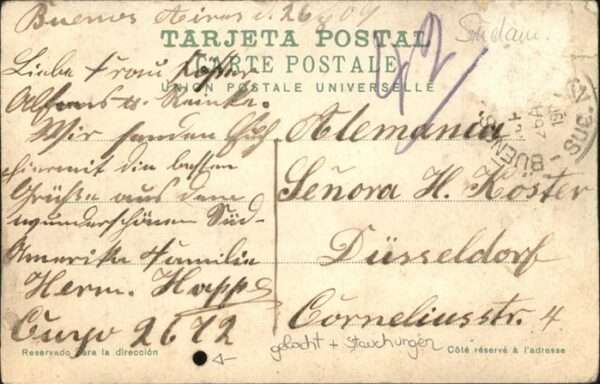 Buenos Aires d. 26 09
Südam.
TARJETA POSTAL
CARTE POSTALE
UNION POSTALE UNIVERSELLE
42
Liebe Frau Köster
Alfons u. Reinke.
Wir senden Euch
hiermit die besten
Grüße aus dem
wunderschönen Süd-
Amerika Familie
Herm. Happe
Cuyo 2672
Alemania
Señora H. Köster
Düsseldorf
Corneliusstr. 4
BUENOS
gelocht + Stauchungen
Reservado para la dirección
Côté réservé à l'adresse